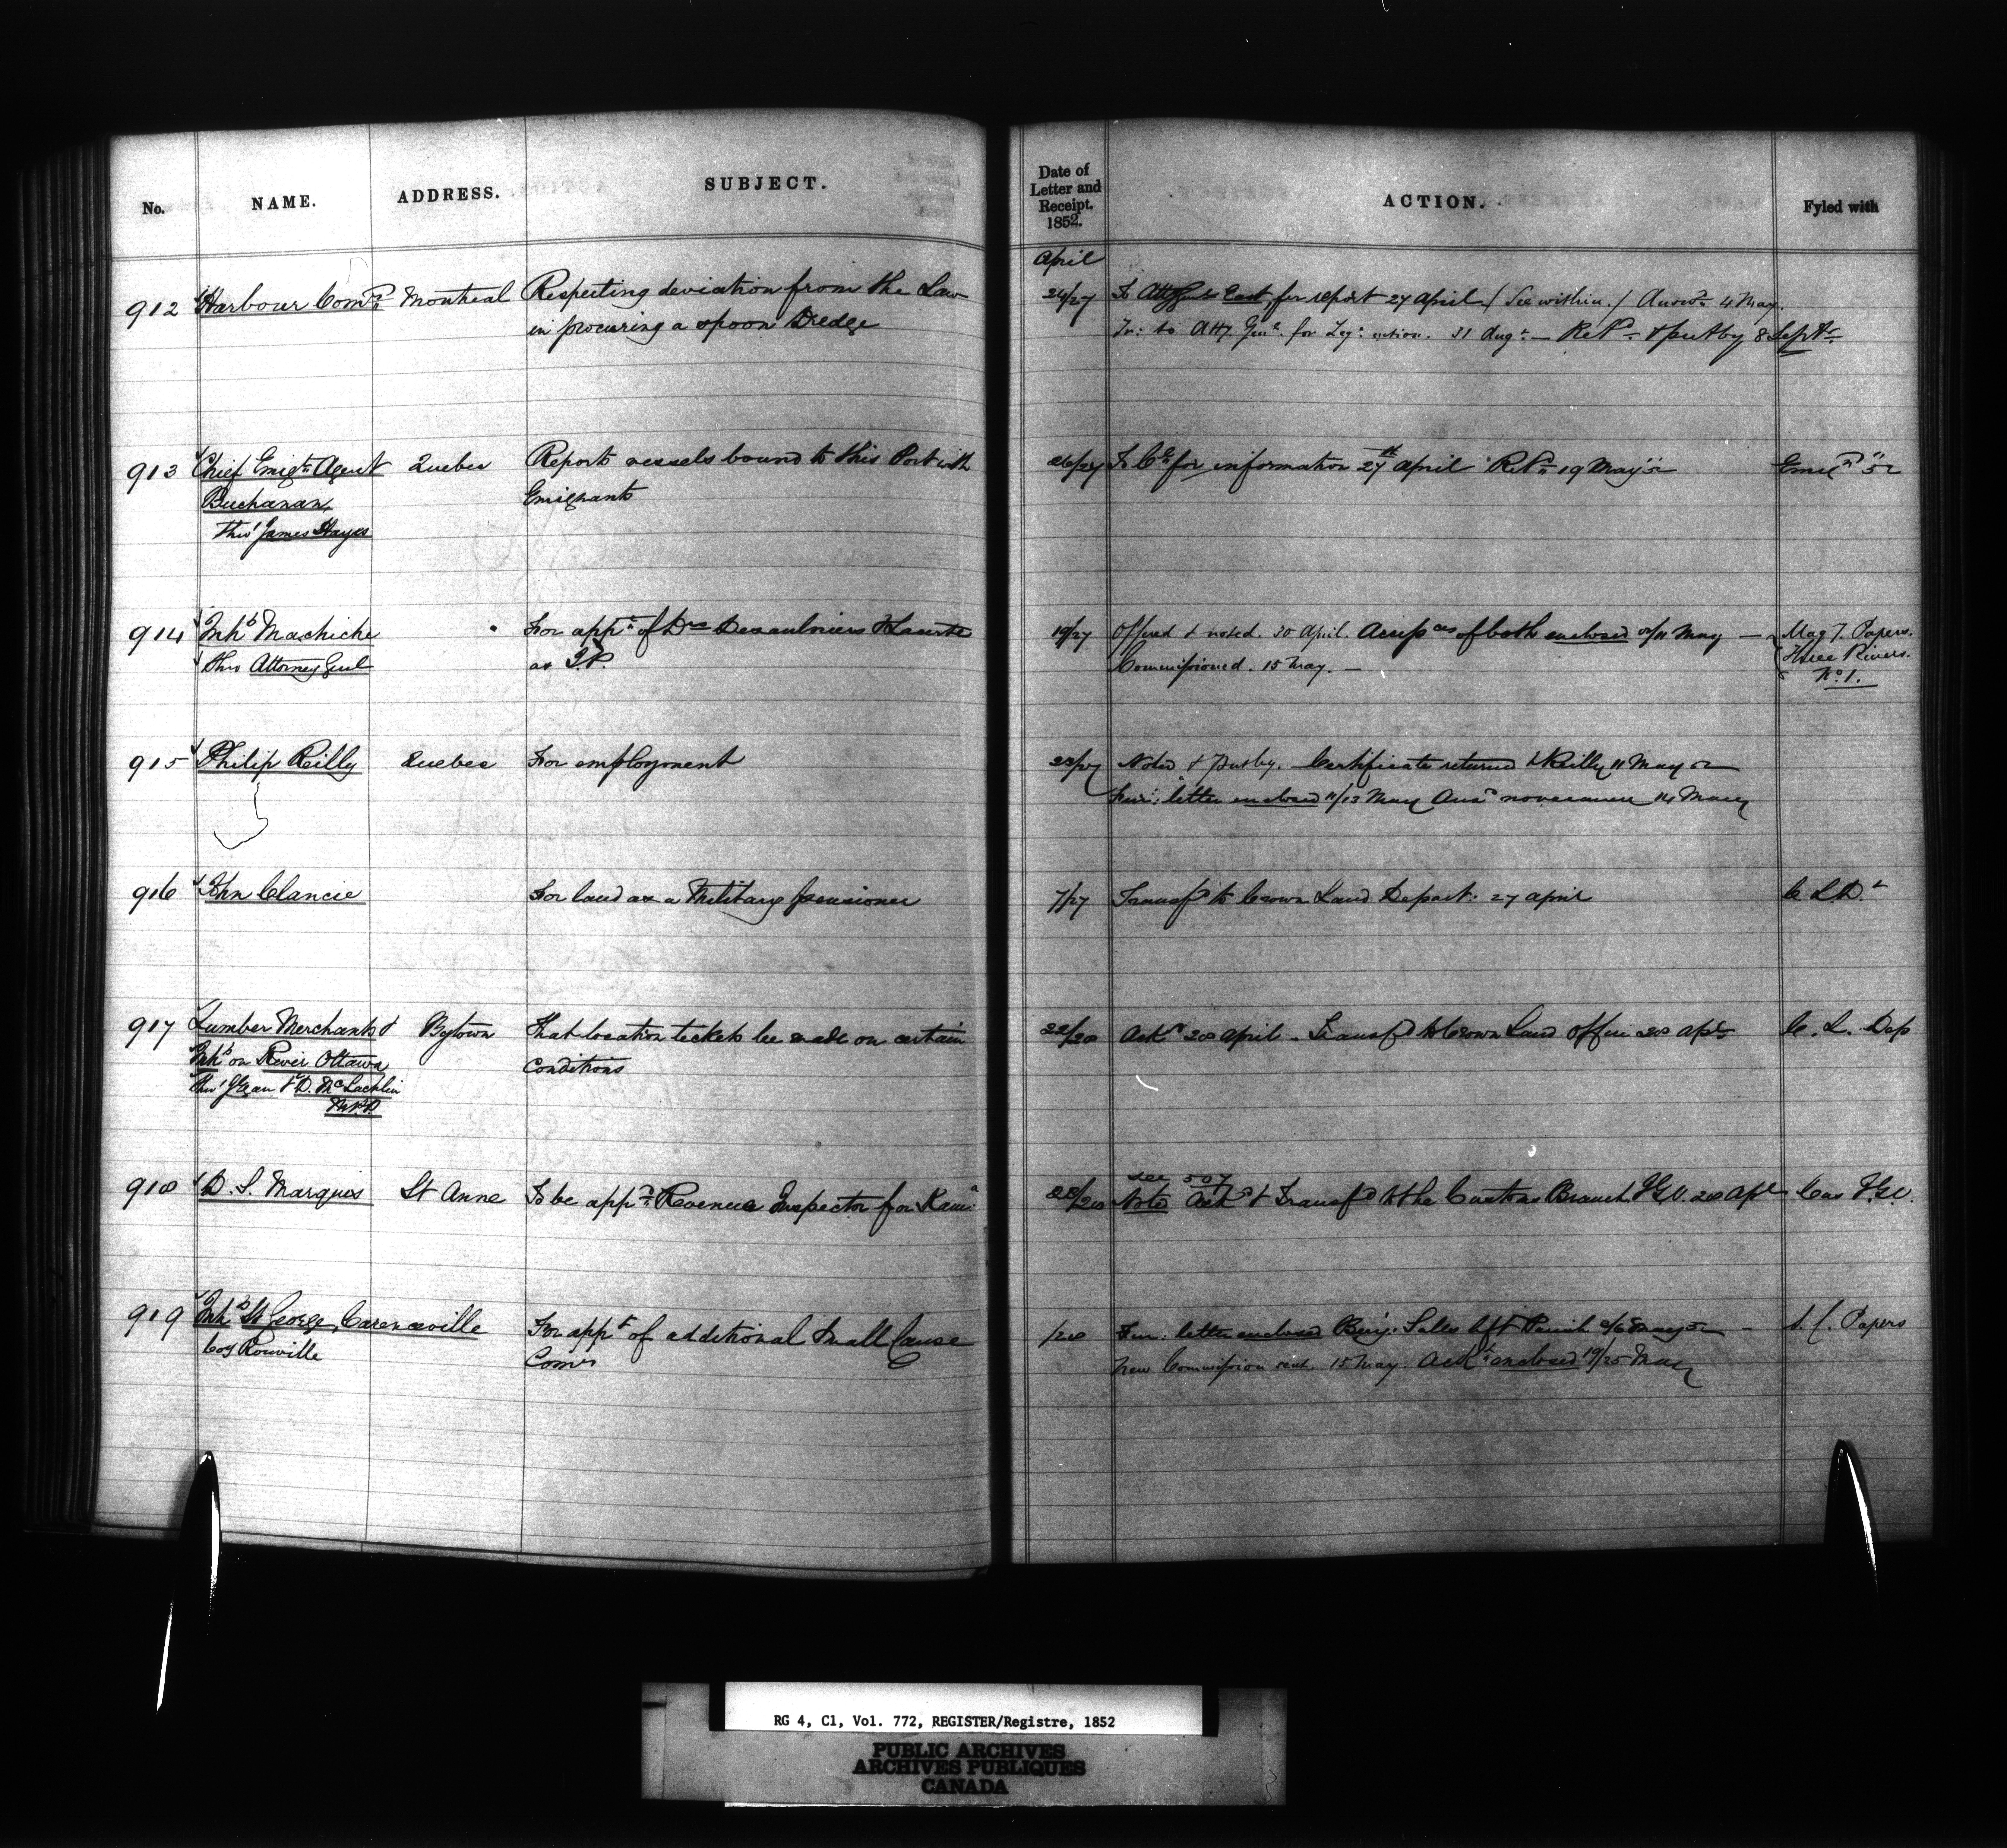 No. NAME. ADDRESS. SUBJECT. Date of Letter and Receipt. 1852. ACTION. Fyled with
April
912 Harbour Comrs Montreal Respecting deviation from the Law 24/27 To Atty Genl East for report 27 April (See within.) Answd 4 May.
in procuring a spoon Dredge Tr: to Atty. Genl. for Leg: action. 31 Augt. — Retd & put by 8 Septr
913 Chief Emigt Agent Quebec Reports vessels bound to this Port with 26/27 for information 27th April Retd 19 May 52
Buchanan Emigrants
thro' James Hayes
914 Inhts Machiche For appt of Drs Desaulniers & as J.P. 19/27 Offered & noted. 30 April. of both enclosed May — Mag T. Papers.
thro Attorney Genl Commissioned. 15 May. — Three Rivers.
No. 1.
915 Philip Reilly Quebec For employment Noted & putby. Certificate returned Reilly 11 May 52
letter enclosed 11/13 May Ansd no vacancy 14 May
916 John Clancie For land as a Military pensioner 7/27 Transfd to Crown Land Depart: 27 April C L.D.t
917 Lumber Merchants & Bytown That location tickets be made on certain Ackd 28 April. Transfd to Crown Land Office 28 Apl C. L. Dep
Inhts on River Ottawa Conditions
thro' J Egan & D. McLachlin
M.P.P.
918 D. S. Marquis St Anne To be appd Revenue Inspector for Kam: 28/28 Noted Ackd & Transfd to the Customs Branch I.G.O. 28 Apl Cus I.G.O.
see 507
919 Inhts St George, Carenceville For appt of additional Small Cause /28 Fur: letter enclosed Benj: Salls May 52 — S. C. Papers
Coy Rouville Comrs New Commission sent. 15 May. Ackt enclosed 19/25 May
RG 4, C1, Vol. 772, REGISTER/Registre, 1852
PUBLIC ARCHIVES
ARCHIVES PUBLIQUES
CANADA